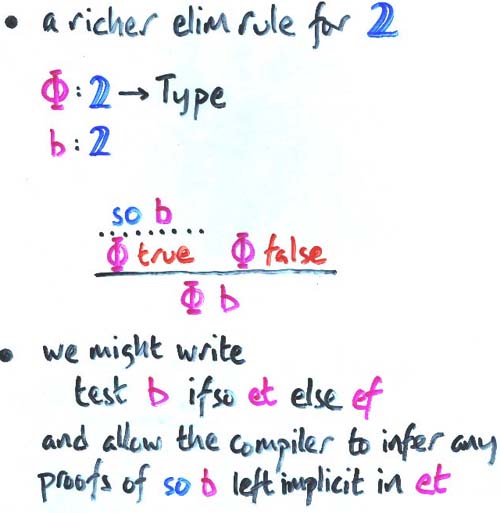 • a richer elim rule for 𝟚
Φ : 𝟚 → Type
b : 𝟚
so b
Φ true Φ false
Φ b
• we might write
test b ifso et else ef
and allow the compiler to infer any
proofs of so b left implicit in et